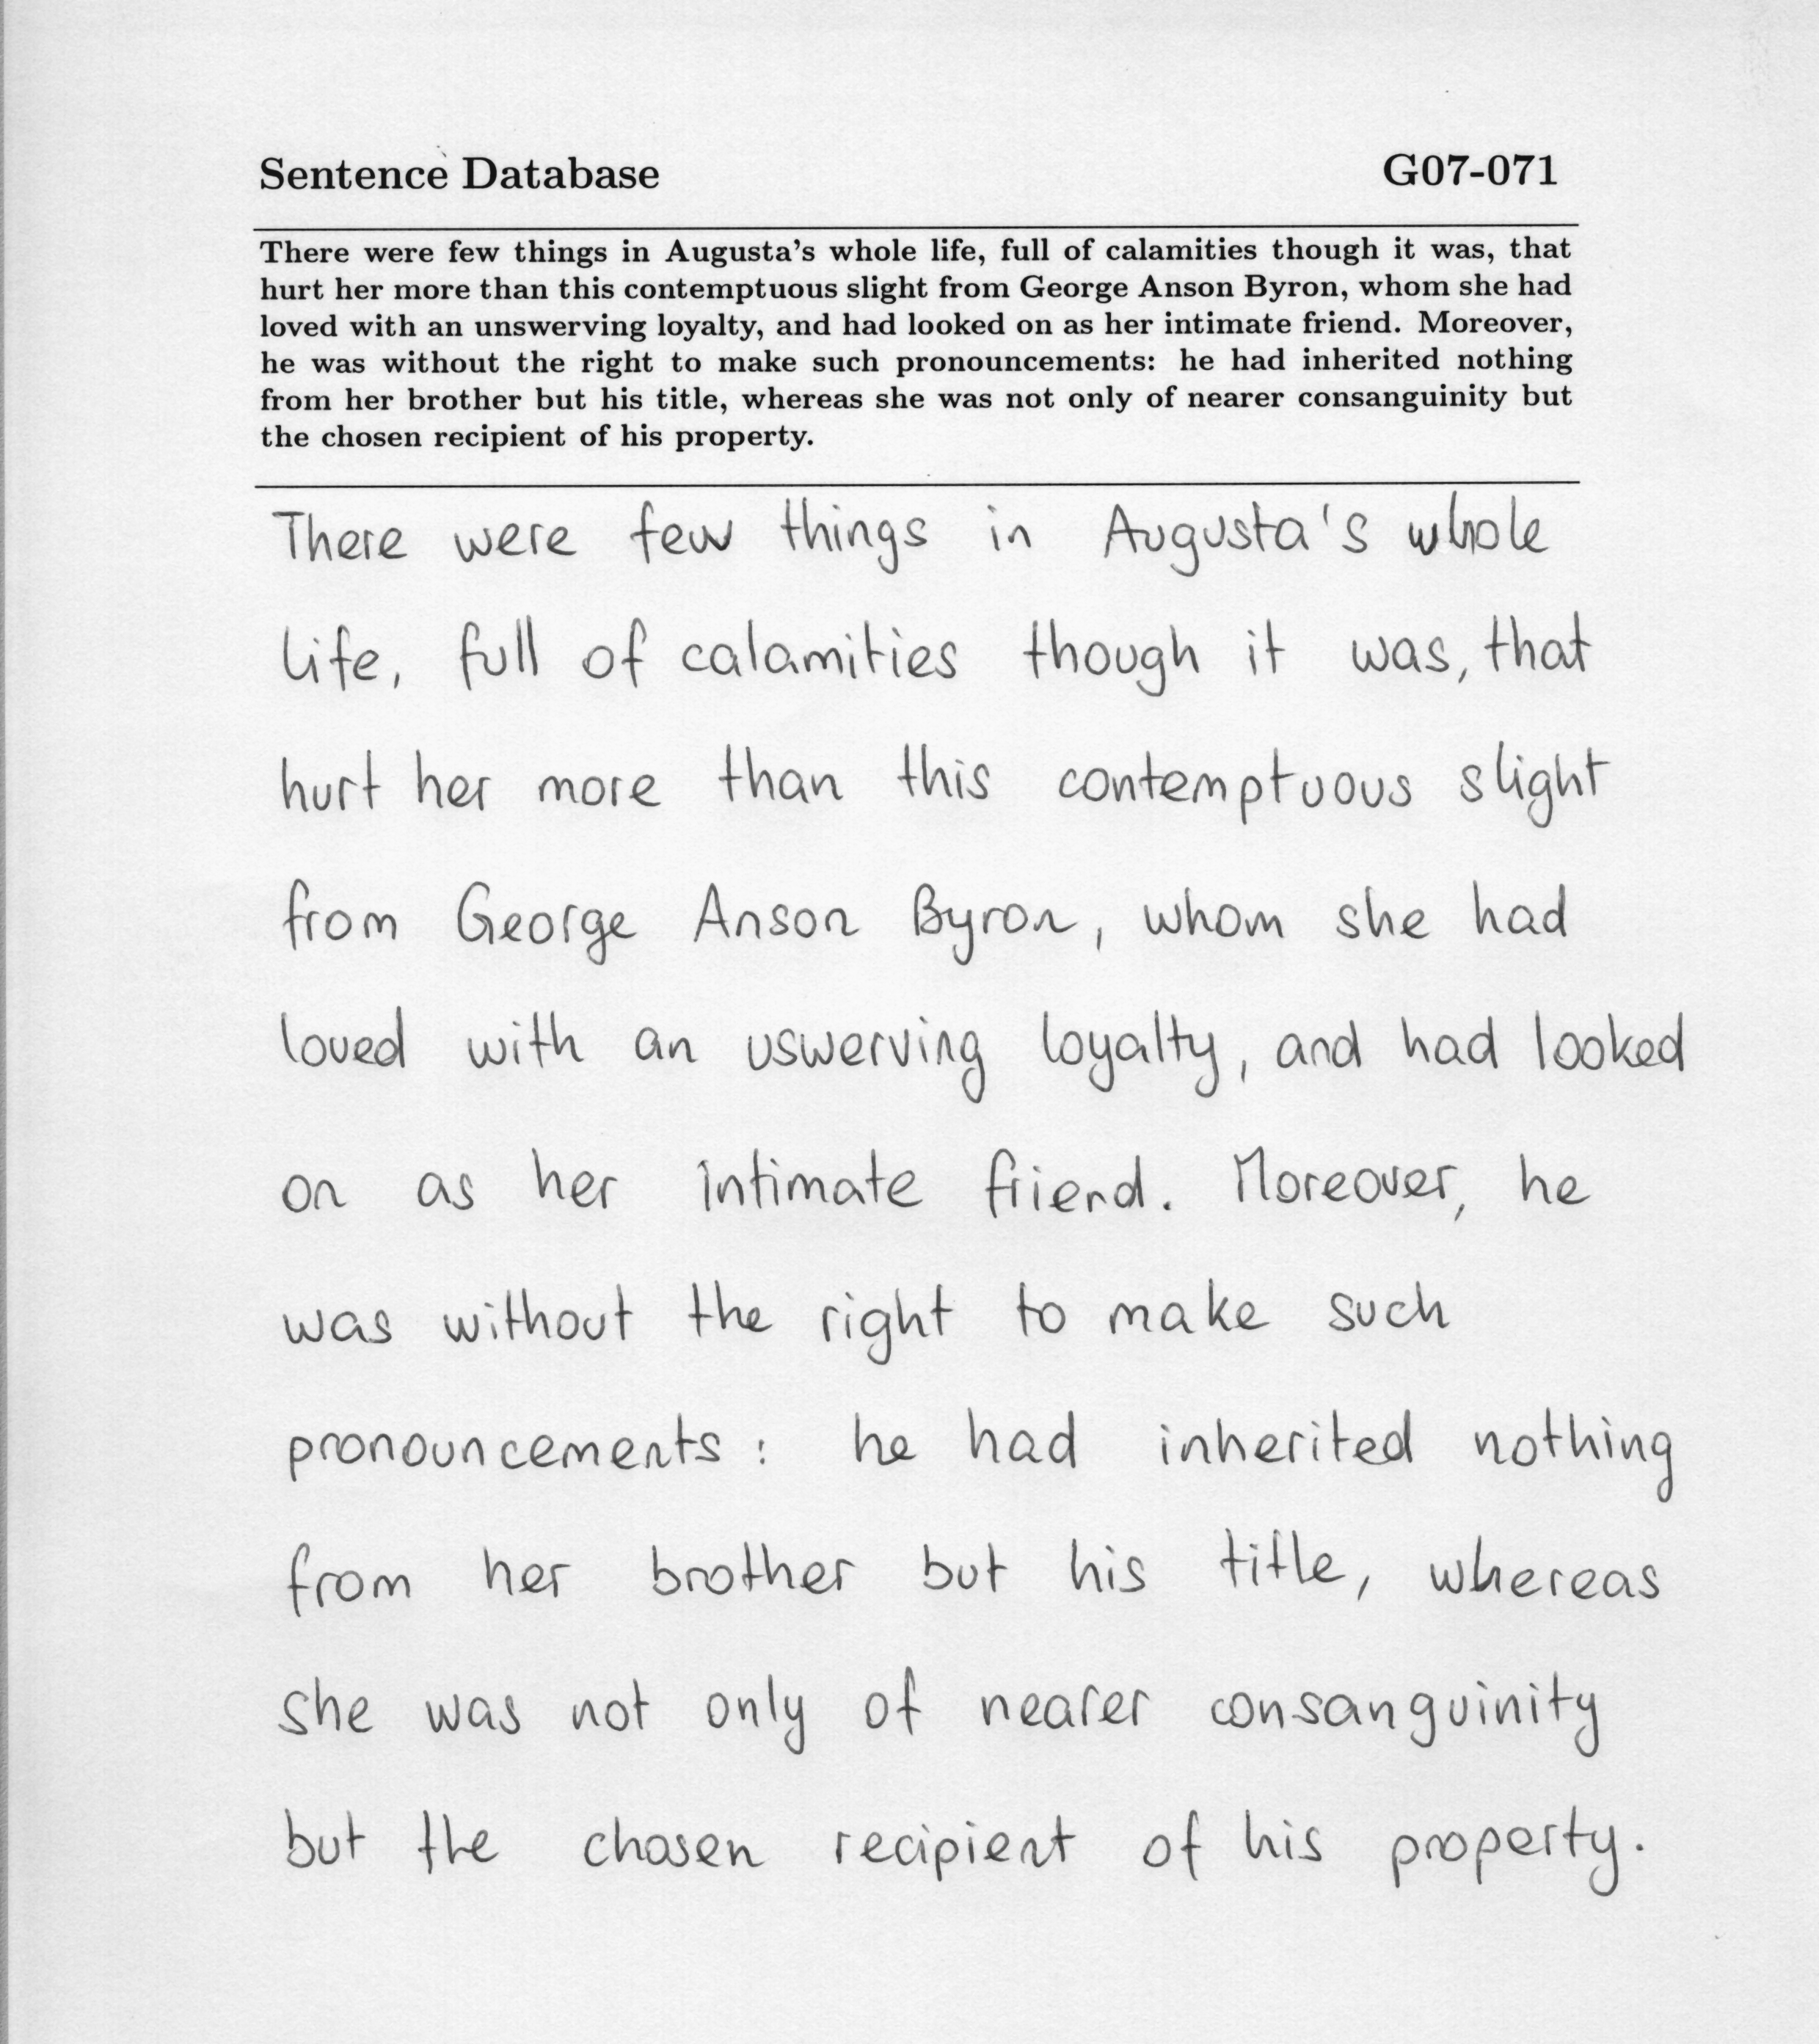 Sentence Database G07-071
There were few things in Augusta's whole life, full of calamities though it was, that
hurt her more than this contemptuous slight from George Anson Byron, whom she had
loved with an unswerving loyalty, and had looked on as her intimate friend. Moreover,
he was without the right to make such pronouncements: he had inherited nothing
from her brother but his title, whereas she was not only of nearer consanguinity but
the chosen recipient of his property.
There were few things in Augusta's whole
life, full of calamities though it was, that
hurt her more than this contemptuous slight
from George Anson Byron, whom she had
loved with an uswerving loyalty, and had looked
on as her intimate friend. Moreover, he
was without the right to make such
pronouncements: he had inherited nothing
from her brother but his title, whereas
she was not only of nearer consanguinity
but the chosen recipient of his property.